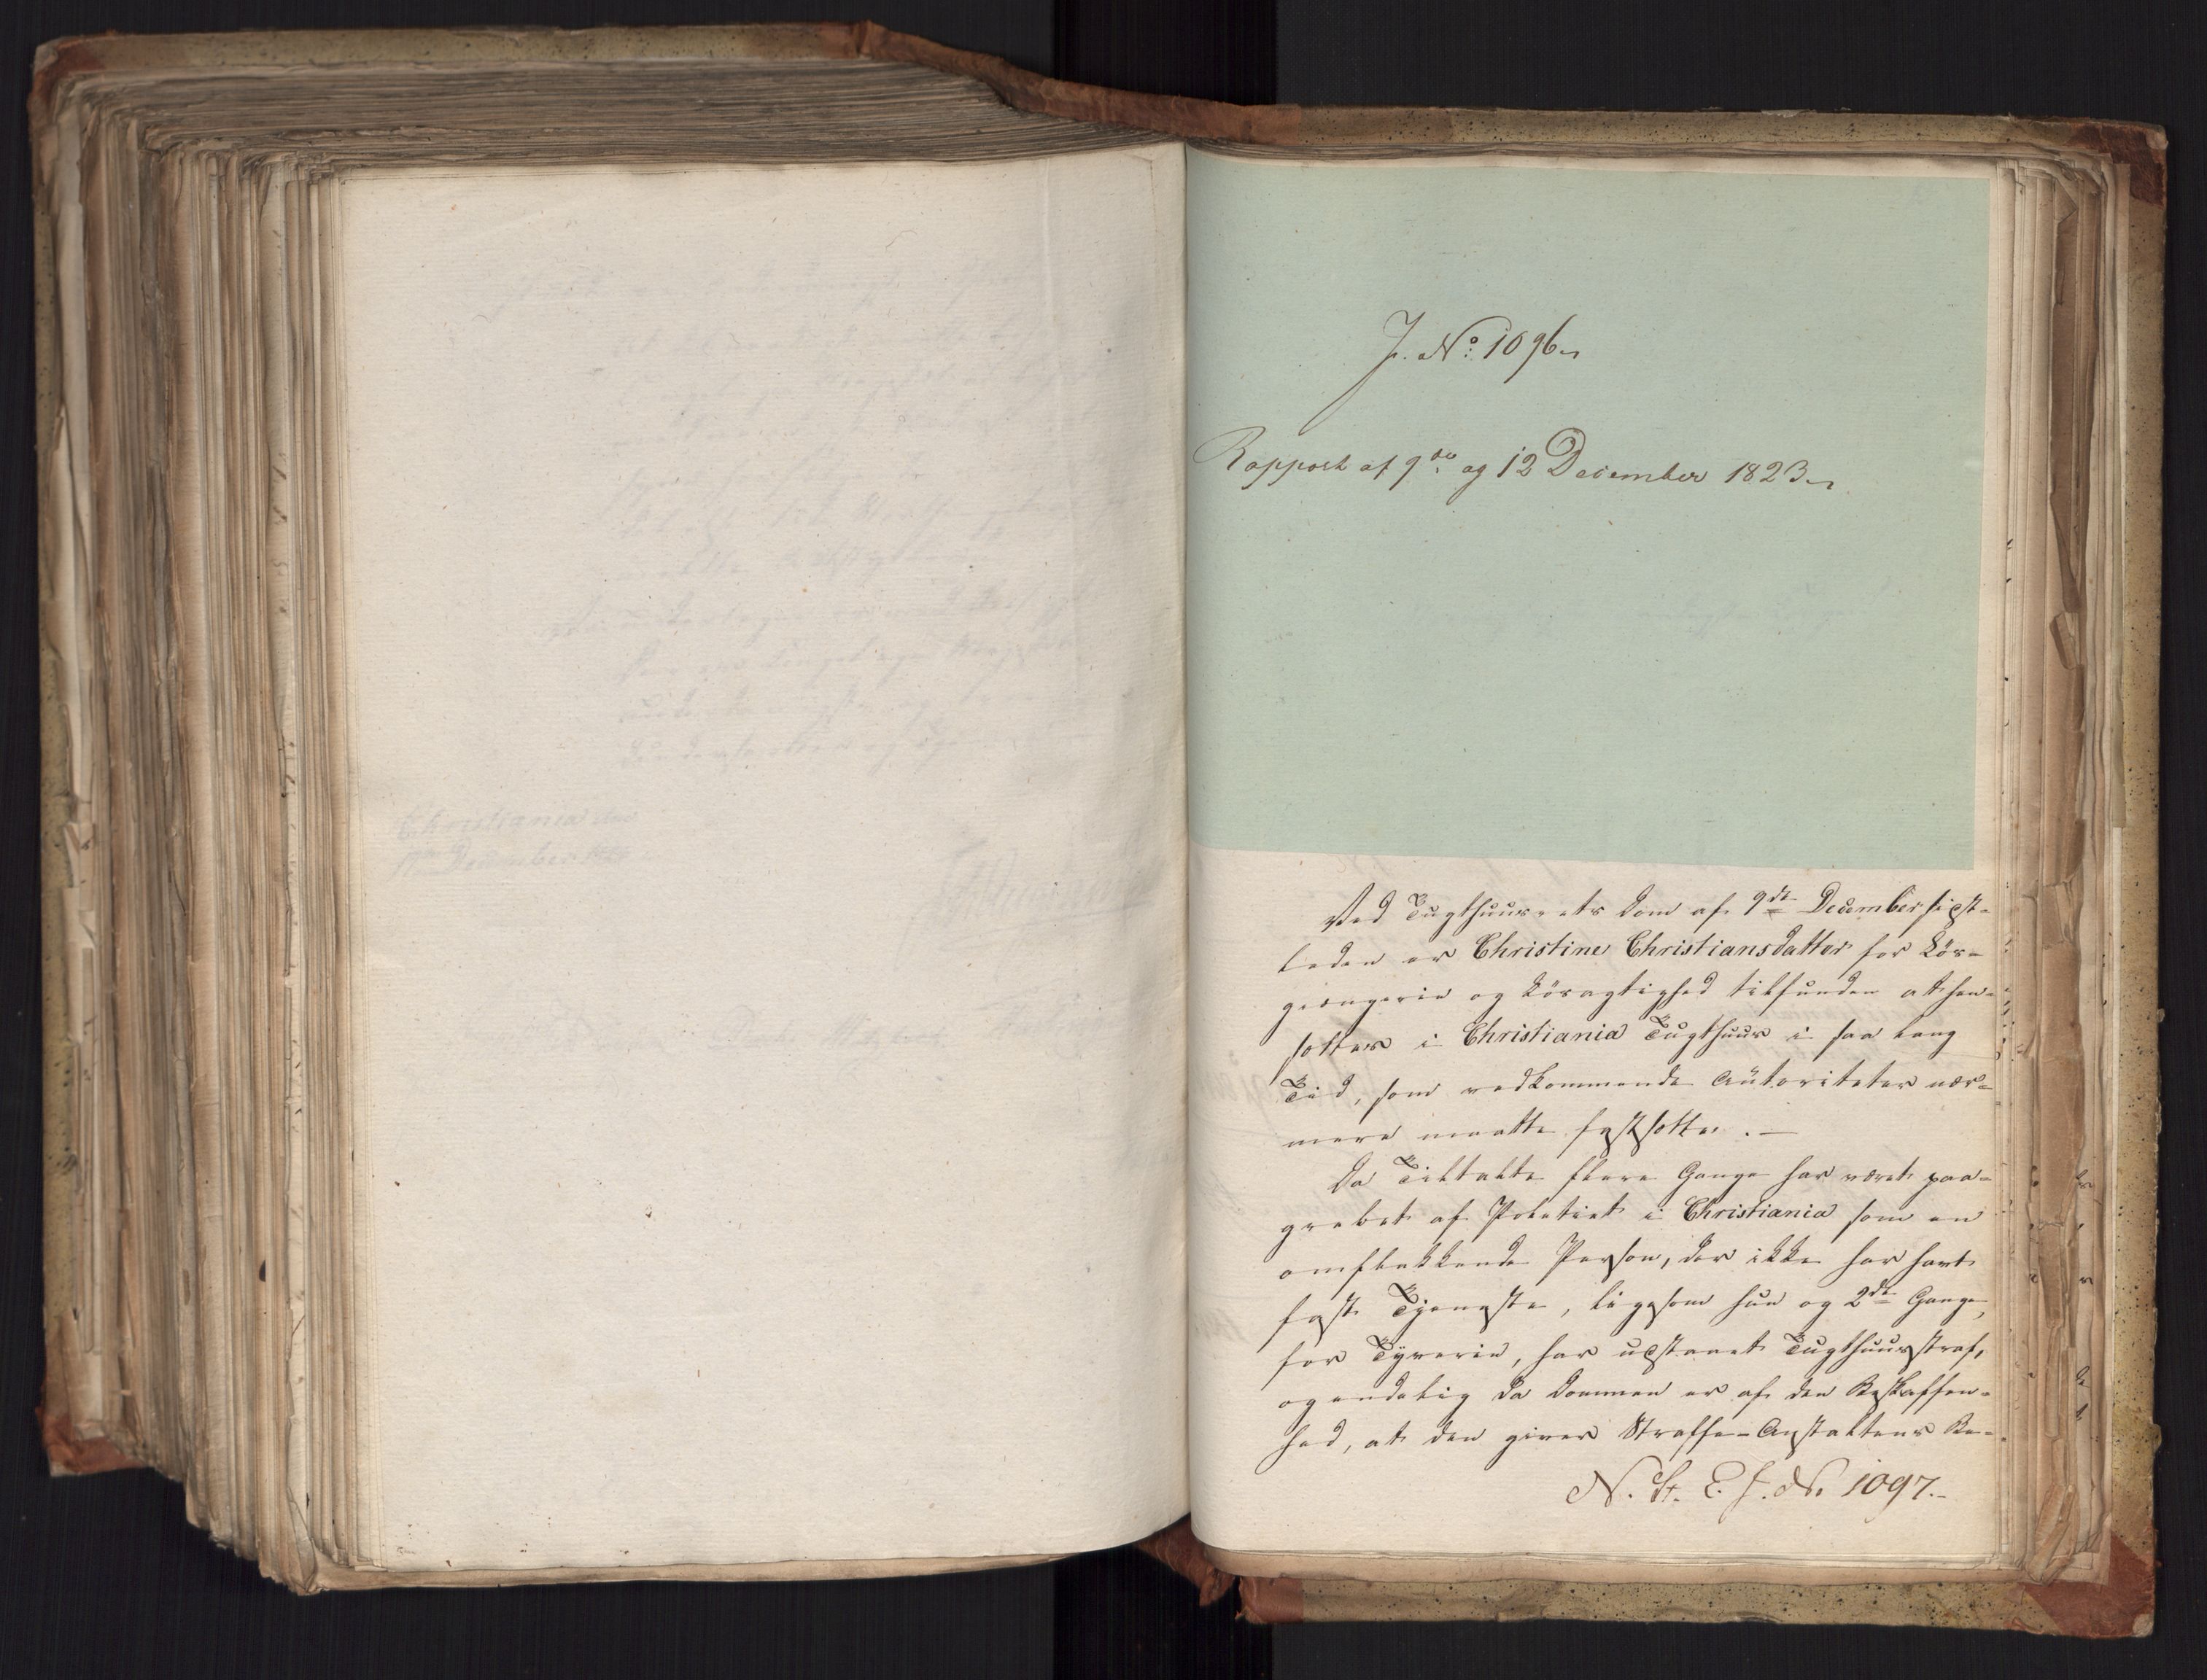 J. No: 1096.
Rapport af 9de og 12 December 1823.
Ved Tugthuusrets Dom af 9de December sidst-
leden er Christine Christiansdatter for Lös-
gjængerie og Lösagtighed tilfunden at hen-
sættes i Christiania Tugthuus i saa lang
Tid, som vedkommende Autoriteter nær-
mere maatte fastsætte. —
Da Tiltalte flere Gange har været paa-
grebet af Politiet i Christiania som en
omflakkende Person, der ikke har havt
fast Tjeneste, ligesom hun og 2de Gange,
for Tyverie, har udstaaet Tugthuusstraf,
og endelig da Dommen er af den Beskaffen-
hed, at den giver Straffe-Anstaltens Be-
N. St. E. J. No 1097.-
Christiania den
December